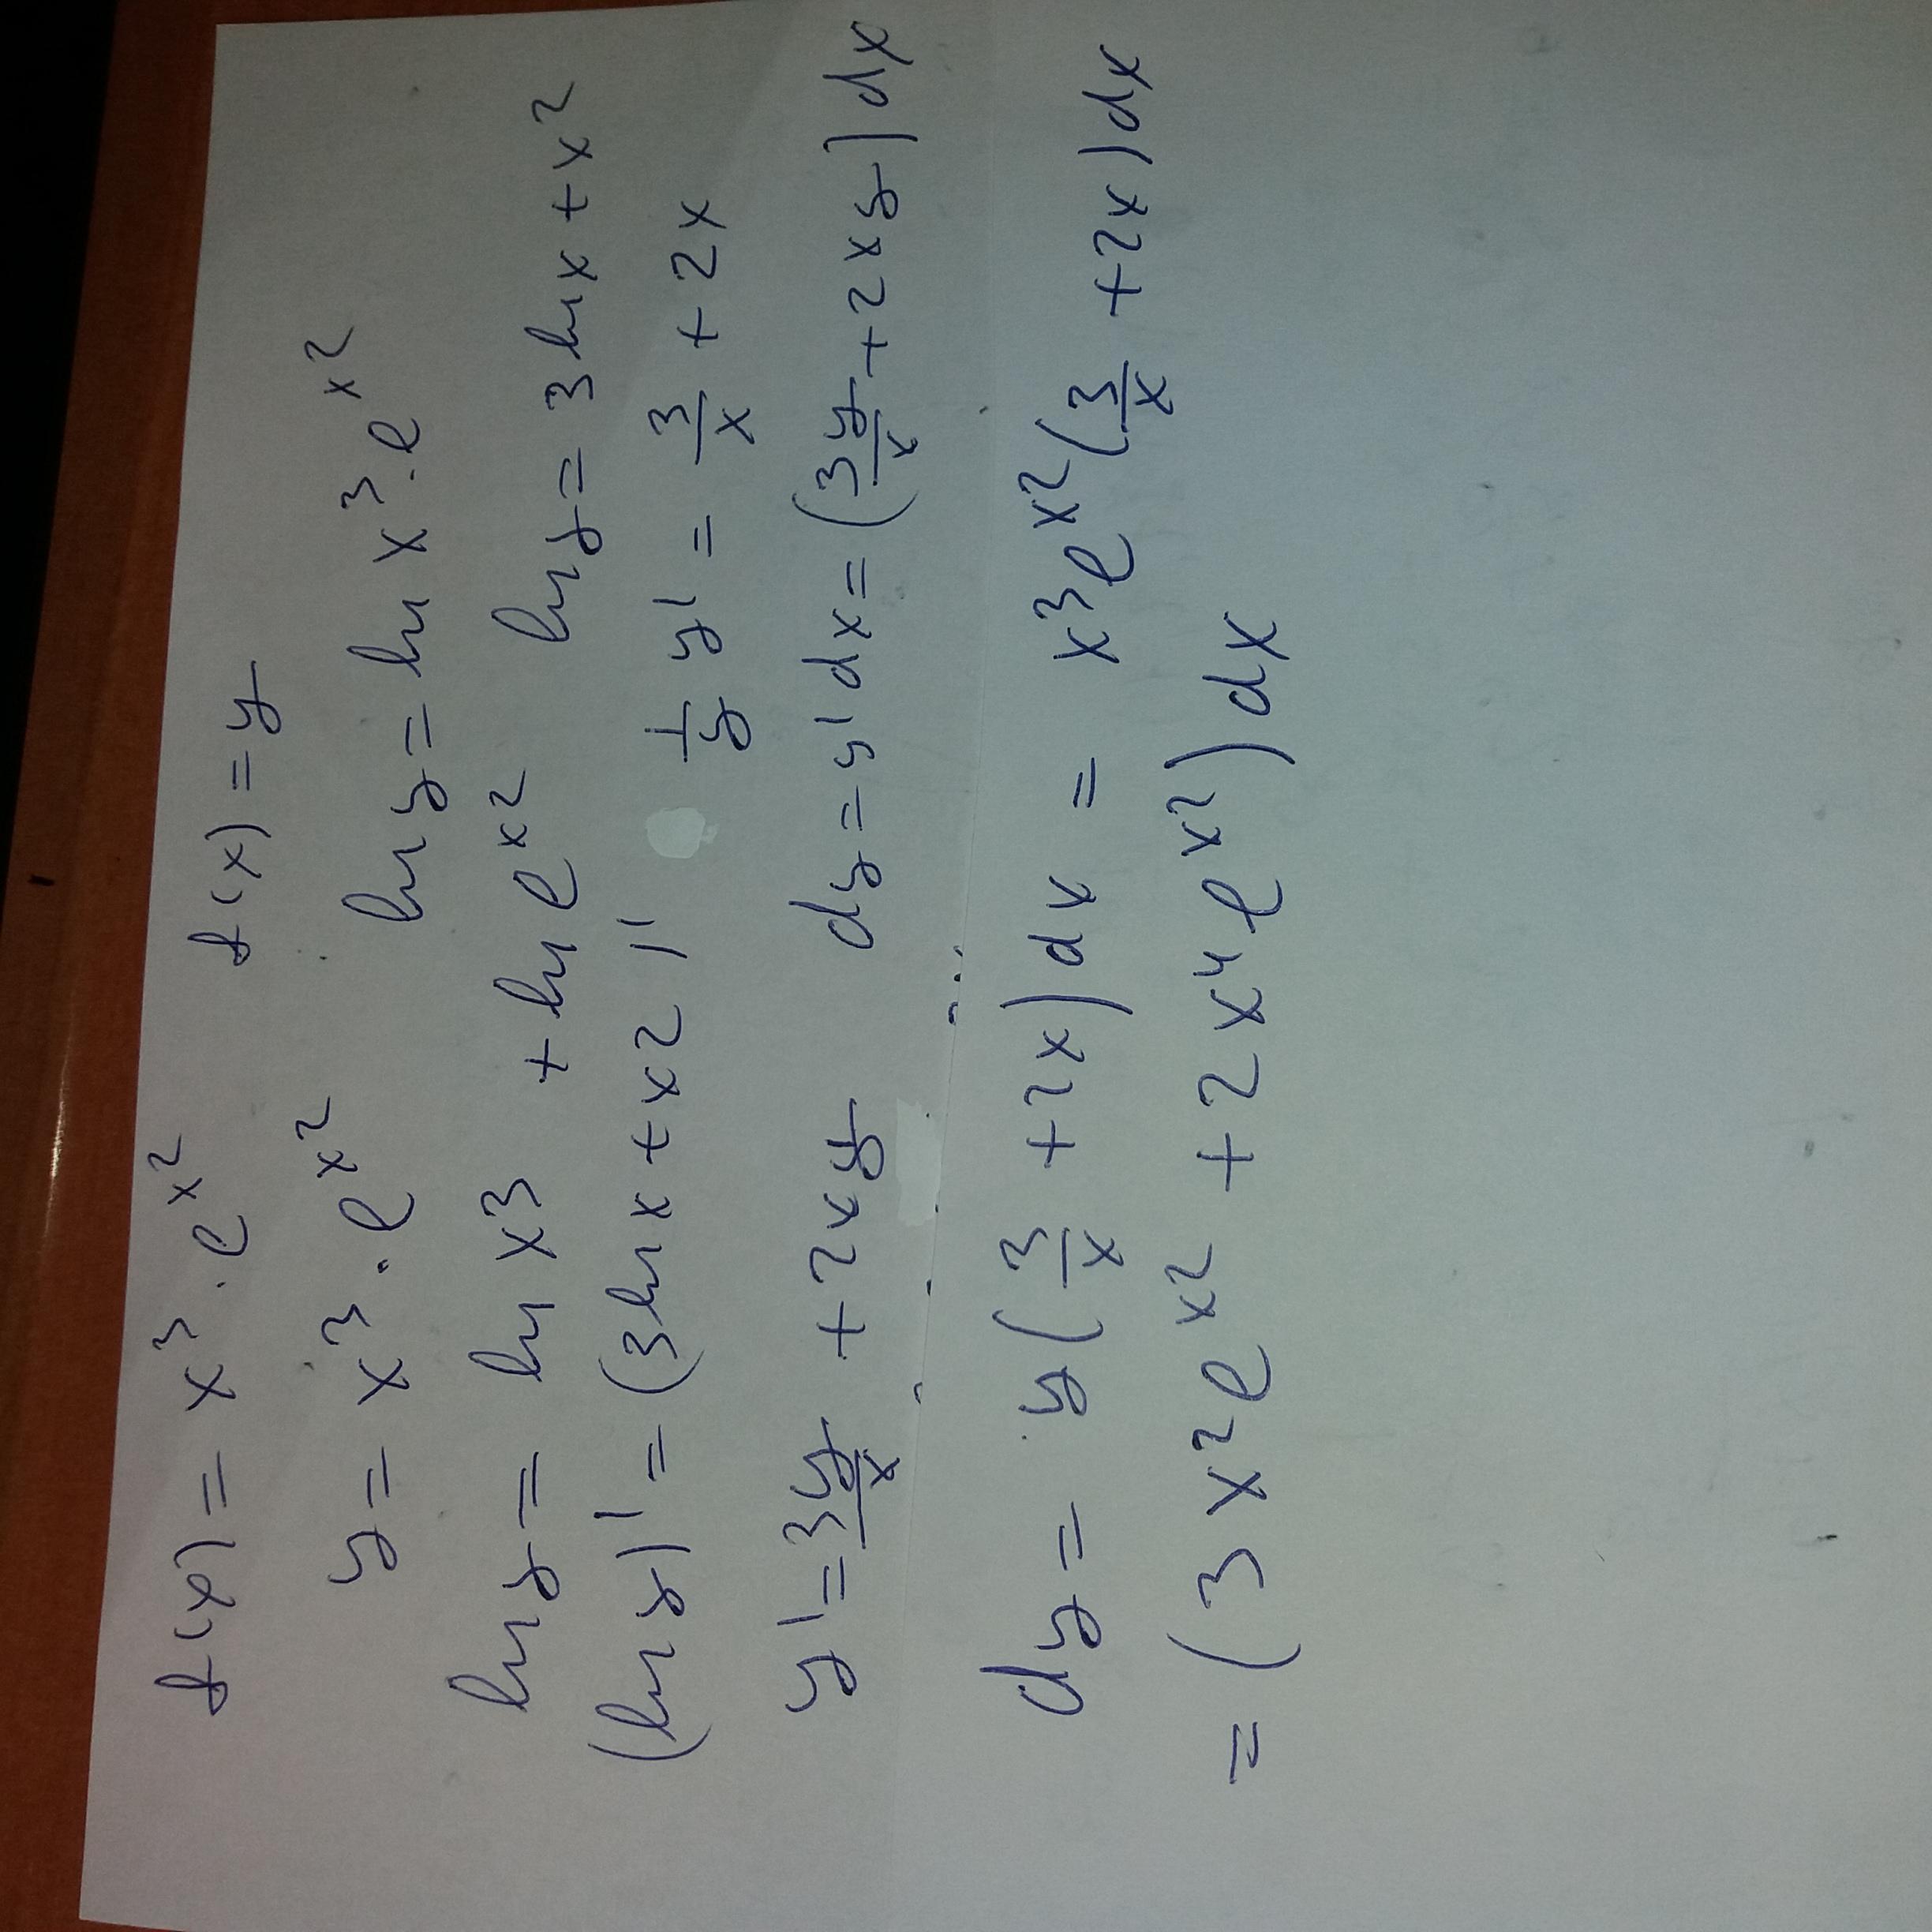 f(x) = x³ · e^x² f(x) = y
y = x³ · e^x² ln y = ln x³ · e^x²
ln y = ln x³ + ln e^x² ln y = 3 ln x + x²
(ln y)' = (3 ln x + x²)' 1/y y' = 3/x + 2x
y' = 3y/x + 2xy dy = y' dx = (3y/x + 2xy) dx
dy = y(3/x + 2x) dx = x³e^x²(3/x + 2x) dx
= (3x²e^x² + 2x⁴e^x²) dx